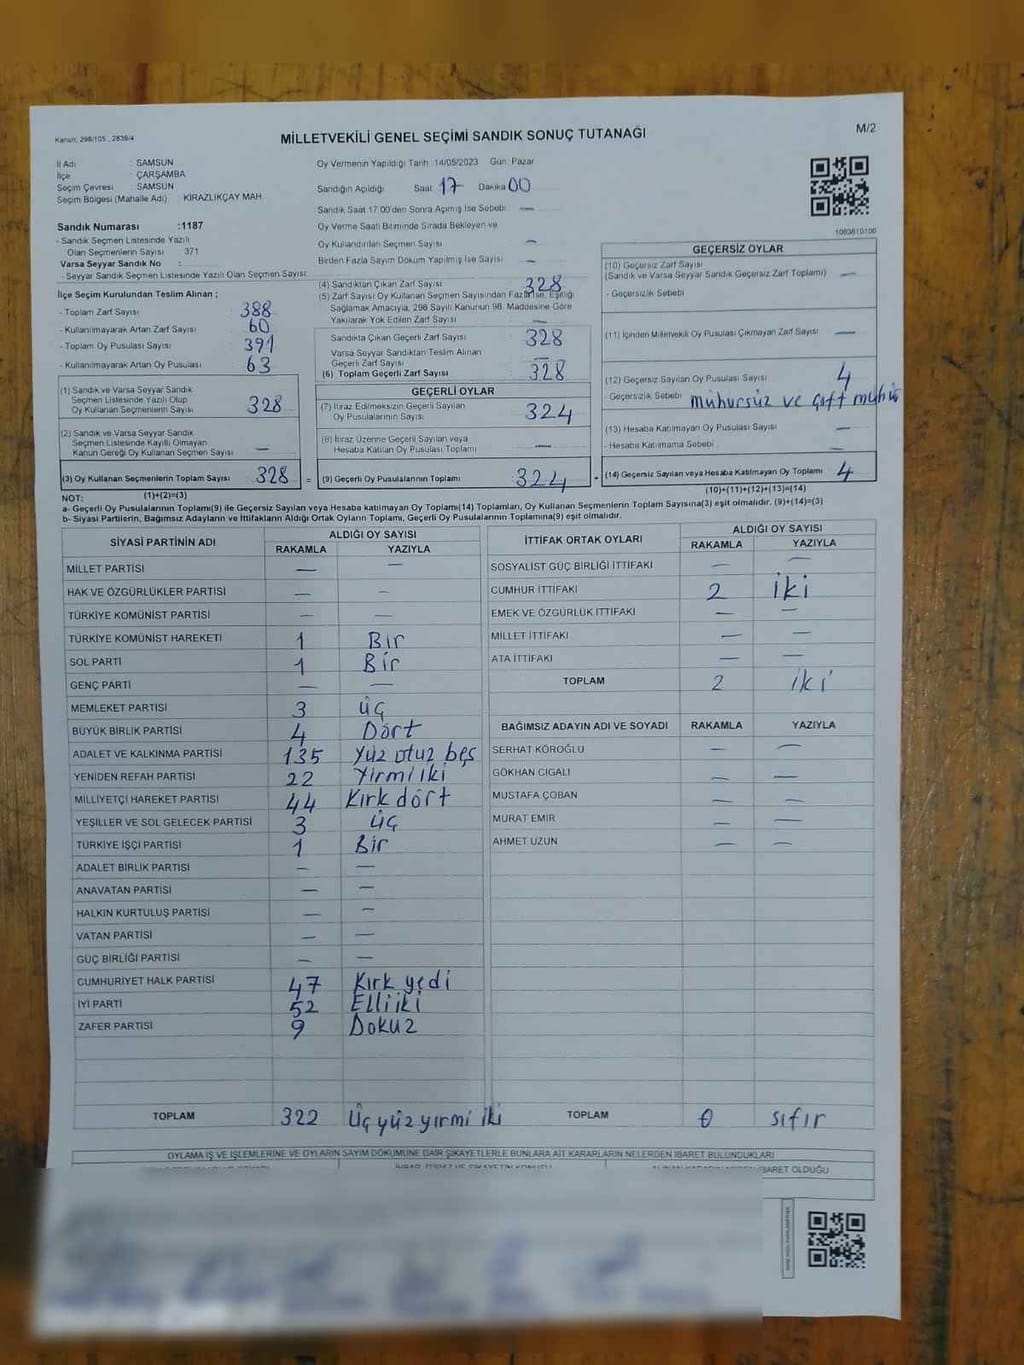 Kanun: 298/105 , 2839/4
MİLLETVEKİLİ GENEL SEÇİMİ SANDIK SONUÇ TUTANAĞI
M/2
İl Adı : SAMSUN
İlçe : ÇARŞAMBA
Seçim Çevresi : SAMSUN
Seçim Bölgesi (Mahalle Adı) : KIRAZLIKÇAY MAH.
Oy Vermenin Yapıldığı Tarih : 14/05/2023 Gün: Pazar
Sandığın Açıldığı Saat 17 Dakika 00
Sandık Saat 17:00'den Sonra Açılmış İse Sebebi —
Oy Verme Saati Bitiminde Sırada Bekleyen ve
Oy Kullandırılan Seçmen Sayısı —
Birden Fazla Sayım Döküm Yapılmış İse Sayısı —
Sandık Numarası :1187
- Sandık Seçmen Listesinde Yazılı
Olan Seçmenlerin Sayısı : 371
Varsa Seyyar Sandık No :
- Seyyar Sandık Seçmen Listesinde Yazılı Olan Seçmen Sayısı:
İlçe Seçim Kurulundan Teslim Alınan ;
- Toplam Zarf Sayısı 388
- Kullanılmayarak Artan Zarf Sayısı 60
- Toplam Oy Pusulası Sayısı 391
- Kullanılmayarak Artan Oy Pusulası 63
(1) Sandık ve Varsa Seyyar Sandık
Seçmen Listesinde Yazılı Olup
Oy Kullanan Seçmenlerin Sayısı 328
(2) Sandık ve Varsa Seyyar Sandık
Seçmen Listesinde Kayıtlı Olmayan
Kanun Gereği Oy Kullanan Seçmen Sayısı —
(3) Oy Kullanan Seçmenlerin Toplam Sayısı 328 =
(1)+(2)=(3)
(4) Sandıktan Çıkan Zarf Sayısı 328
(5) Zarf Sayısı Oy Kullanan Seçmen Sayısından Fazla İse, Eşitliği
Sağlamak Amacıyla, 298 Sayılı Kanunun 98. Maddesine Göre
Yakılarak Yok Edilen Zarf Sayısı —
Sandıkta Çıkan Geçerli Zarf Sayısı 328
Varsa Seyyar Sandıktan Teslim Alınan
Geçerli Zarf Sayısı —
(6) Toplam Geçerli Zarf Sayısı 328
GEÇERLİ OYLAR
(7) İtiraz Edilmeksizin Geçerli Sayılan
Oy Pusulalarının Sayısı 324
(8) İtiraz Üzerine Geçerli Sayılan veya
Hesaba Katılan Oy Pusulası Toplamı —
(9) Geçerli Oy Pusulalarının Toplamı 324
1083610100
GEÇERSİZ OYLAR
(10) Geçersiz Zarf Sayısı
(Sandık ve Varsa Seyyar Sandık Geçersiz Zarf Toplamı) —
- Geçersizlik Sebebi
(11) İçinden Milletvekili Oy Pusulası Çıkmayan Zarf Sayısı —
(12) Geçersiz Sayılan Oy Pusulası Sayısı 4
Geçersizlik Sebebi mühürsüz ve çift mühür
(13) Hesaba Katılmayan Oy Pusulası Sayısı —
- Hesaba Katılmama Sebebi —
(14) Geçersiz Sayılan veya Hesaba Katılmayan Oy Toplamı 4
(10)+(11)+(12)+(13)=(14)
NOT:
a- Geçerli Oy Pusulalarının Toplamı(9) ile Geçersiz Sayılan veya Hesaba katılmayan Oy Toplamı(14) Toplamları, Oy Kullanan Seçmenlerin Toplam Sayısına(3) eşit olmalıdır. (9)+(14)=(3)
b- Siyasi Partilerin, Bağımsız Adayların ve İttifakların Aldığı Ortak Oyların Toplamı, Geçerli Oy Pusulalarının Toplamına(9) eşit olmalıdır.
SİYASİ PARTİNİN ADI ALDIĞI OY SAYISI
RAKAMLA YAZIYLA
MİLLET PARTİSİ — —
HAK VE ÖZGÜRLÜKLER PARTİSİ — —
TÜRKİYE KOMÜNİST PARTİSİ — —
TÜRKİYE KOMÜNİST HAREKETİ 1 Bir
SOL PARTİ 1 Bir
GENÇ PARTİ — —
MEMLEKET PARTİSİ 3 üç
BÜYÜK BİRLİK PARTİSİ 4 Dört
ADALET VE KALKINMA PARTİSİ 135 yüz otuz beş
YENİDEN REFAH PARTİSİ 22 Yirmi iki
MİLLİYETÇİ HAREKET PARTİSİ 44 Kırk dört
YEŞİLLER VE SOL GELECEK PARTİSİ 3 üç
TÜRKİYE İŞÇİ PARTİSİ 1 Bir
ADALET BİRLİK PARTİSİ — —
ANAVATAN PARTİSİ — —
HALKIN KURTULUŞ PARTİSİ — —
VATAN PARTİSİ — —
GÜÇ BİRLİĞİ PARTİSİ — —
CUMHURİYET HALK PARTİSİ 47 Kırk yedi
İYİ PARTİ 52 Elli iki
ZAFER PARTİSİ 9 Dokuz
TOPLAM 322 Üç yüz yirmi iki
İTTİFAK ORTAK OYLARI ALDIĞI OY SAYISI
RAKAMLA YAZIYLA
SOSYALİST GÜÇ BİRLİĞİ İTTİFAKI — —
CUMHUR İTTİFAKI 2 iki
EMEK VE ÖZGÜRLÜK İTTİFAKI — —
MİLLET İTTİFAKI — —
ATA İTTİFAKI — —
TOPLAM 2 iki
BAĞIMSIZ ADAYIN ADI VE SOYADI RAKAMLA YAZIYLA
SERHAT KÖROĞLU — —
GÖKHAN CIGALI — —
MUSTAFA ÇOBAN — —
MURAT EMİR — —
AHMET UZUN — —
TOPLAM 0 sıfır
OYLAMA İŞ VE İŞLEMLERİNE VE OYLARIN SAYIM DÖKÜMÜNE DAİR ŞİKAYETLERLE BUNLARA AİT KARARLARIN NELERDEN İBARET BULUNDUKLARI